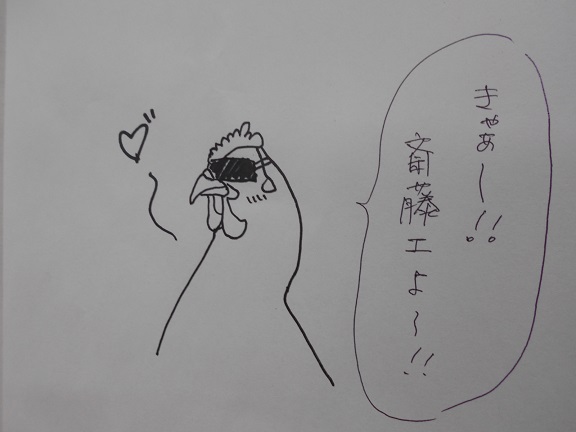 きゃあ〜!!
斎藤工よ〜!!